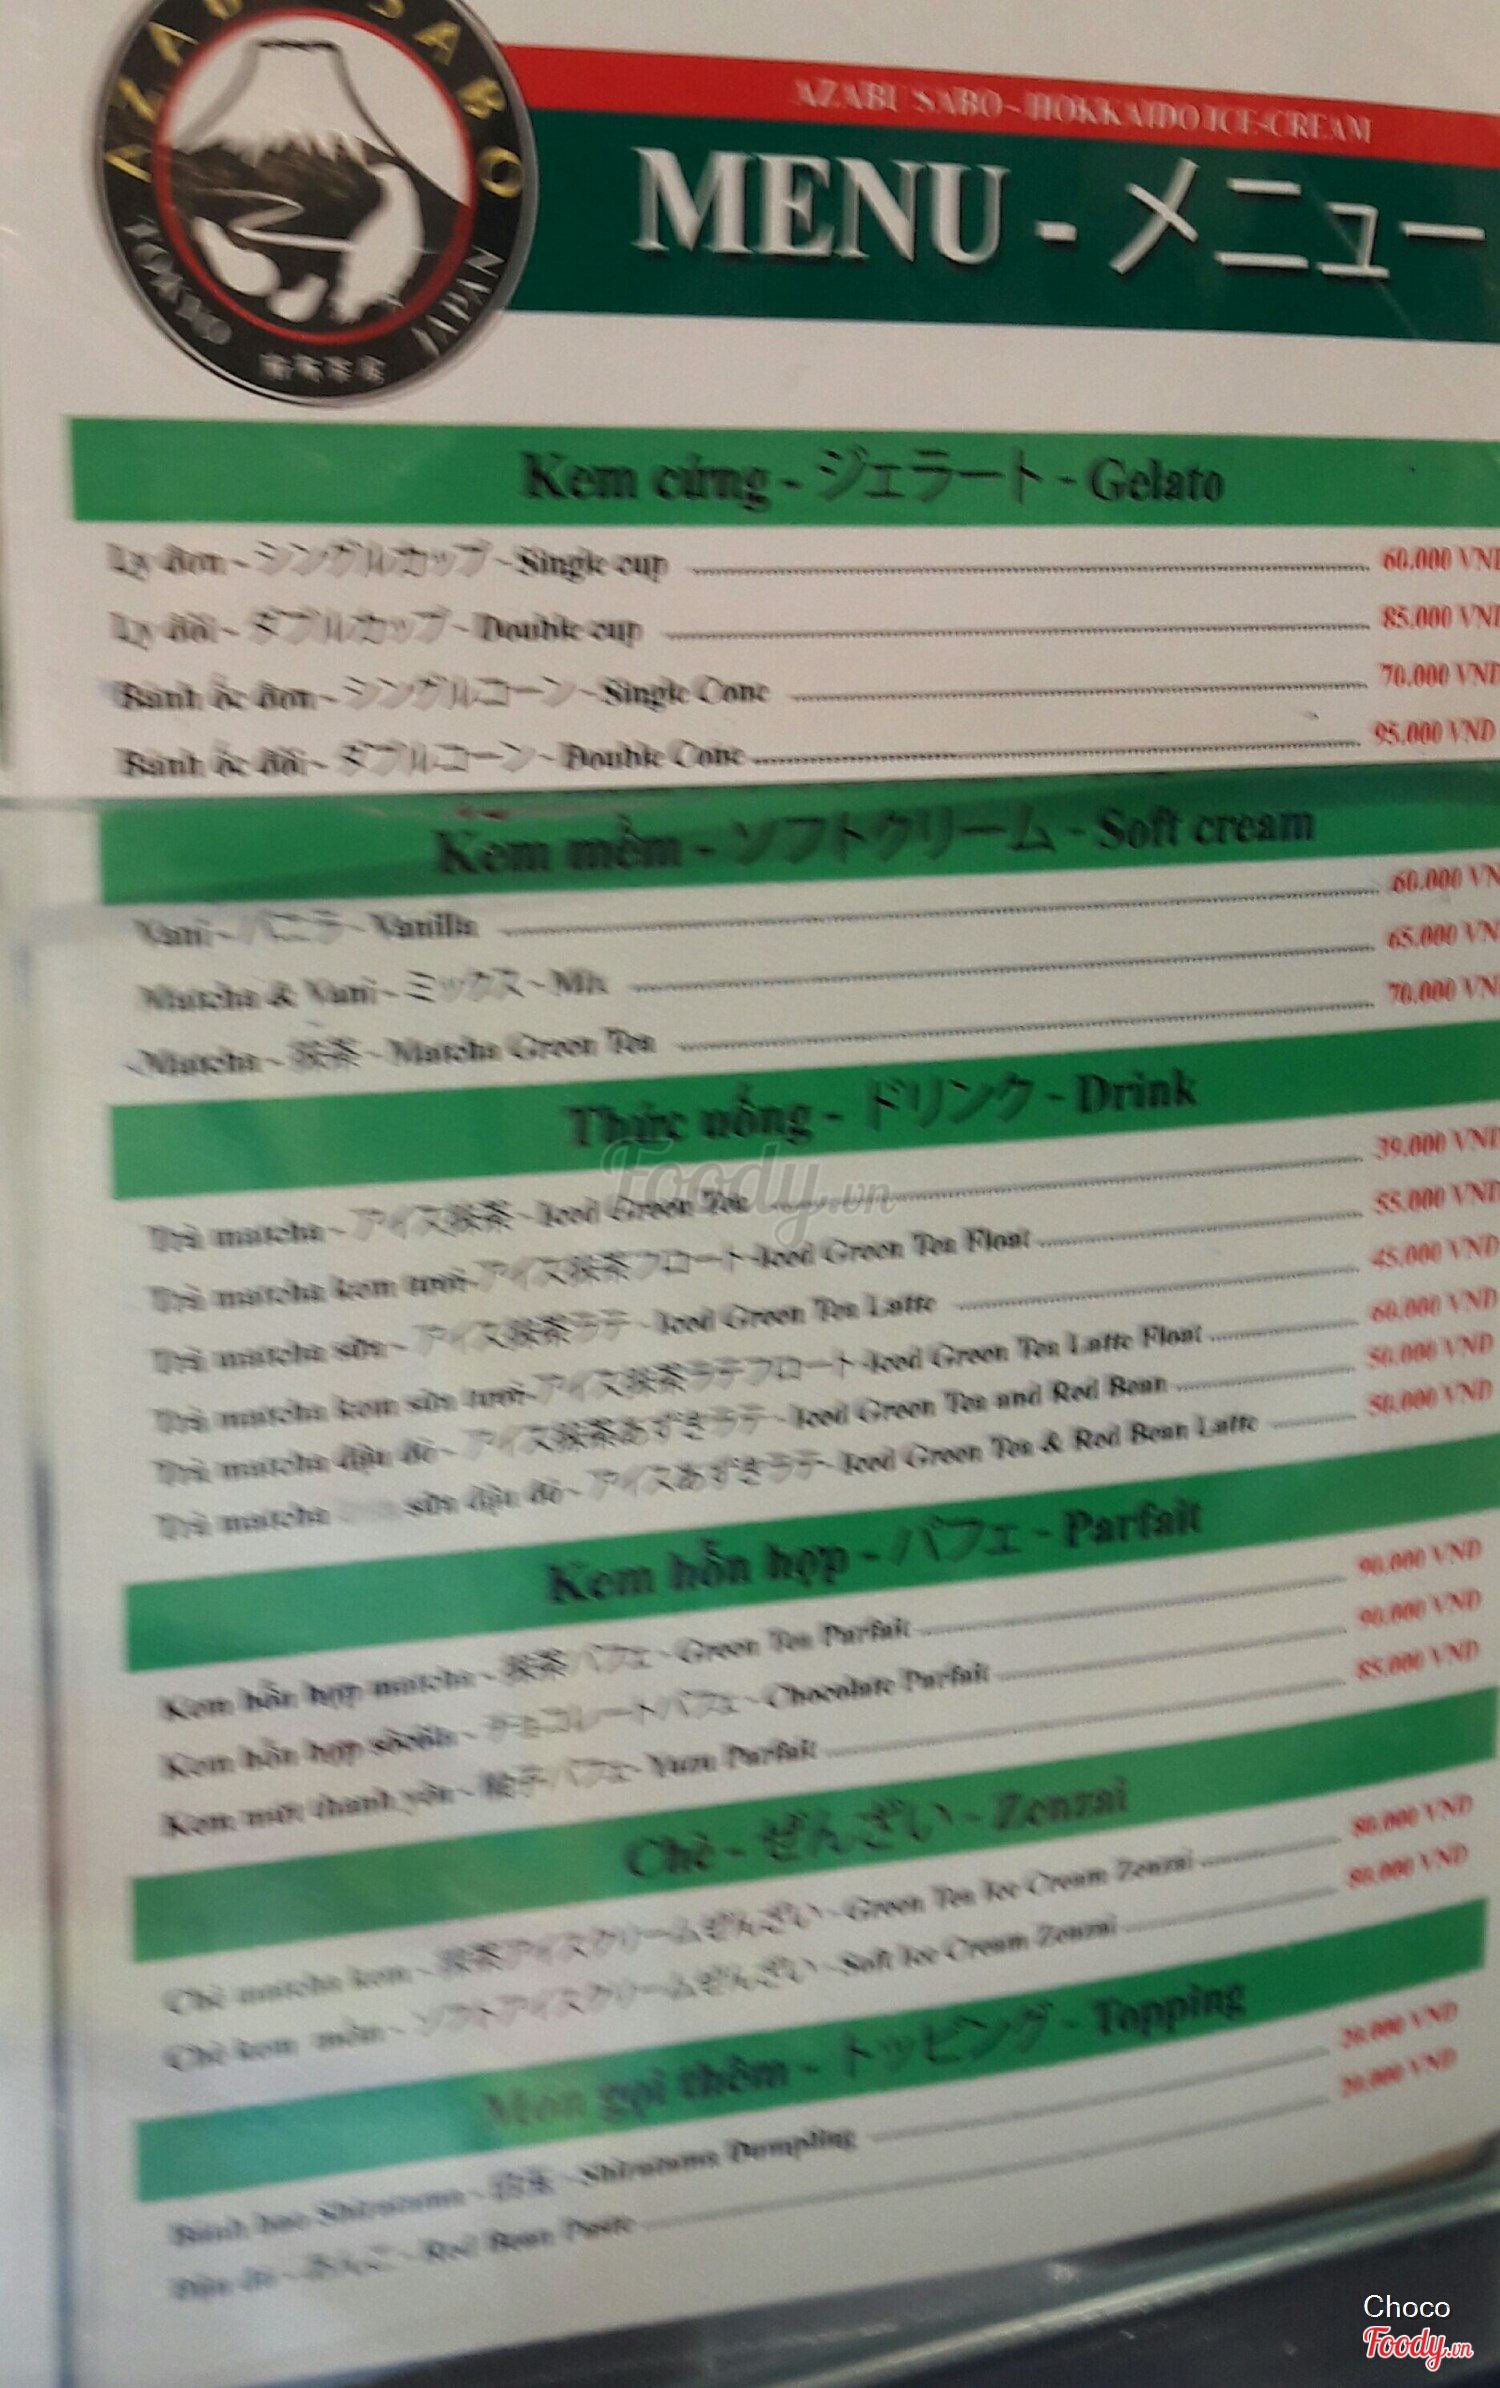 AZABU SABO
TOKYO JAPAN
AZABU SABO - HOKKAIDO ICE-CREAM
MENU - メニュー
Kem cứng - ジェラート - Gelato
Ly đơn - シングルカップ - Single cup 60.000 VND
Ly đôi - ダブルカップ - Double cup 85.000 VND
Bánh ốc đơn - シングルコーン - Single Cone 70.000 VND
Bánh ốc đôi - ダブルコーン - Double Cone 95.000 VND
Kem mềm - ソフトクリーム - Soft cream
Vani - バニラ - Vanilla 60.000 VN
Matcha & Vani - ミックス - Mix 65.000 VN
Matcha - 抹茶 - Matcha Green Tea 70.000 VN
Thức uống - ドリンク - Drink
Trà matcha - アイス抹茶 - Iced Green Tea 39.000 VND
Trà matcha kem tươi - アイス抹茶フロート - Iced Green Tea Float 55.000 VND
Trà matcha sữa - アイス抹茶ラテ - Iced Green Tea Latte 45.000 VND
Trà matcha kem sữa tươi - アイス抹茶ラテフロート - Iced Green Tea Latte Float 60.000 VND
Trà matcha đậu đỏ - アイス抹茶あずきラテ - Iced Green Tea and Red Bean 50.000 VND
Trà matcha sữa đậu đỏ - アイスあずきラテ - Iced Green Tea & Red Bean Latte 50.000 VND
Kem hỗn hợp - パフェ - Parfait
Kem hỗn hợp matcha - 抹茶パフェ - Green Tea Parfait 90.000 VND
Kem hỗn hợp sôcôla - チョコレートパフェ - Chocolate Parfait 90.000 VND
Kem mứt thanh yên - 柚子パフェ - Yuzu Parfait 85.000 VND
Chè - ぜんざい - Zenzai
Chè matcha kem - 抹茶アイスクリームぜんざい - Green Tea Ice Cream Zenzai 80.000 VND
Chè kem mềm - ソフトアイスクリームぜんざい - Soft Ice Cream Zenzai 80.000 VND
Món gọi thêm - トッピング - Topping
Bánh bao Shiratama - 白玉 - Shiratama Dumpling 20.000 VND
Đậu đỏ - あんこ - Red Bean Paste 20.000 VND
Foody.vn
Choco
Foody.vn